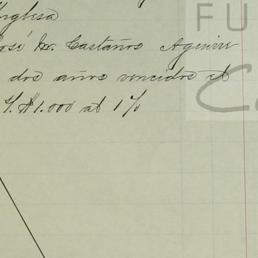 Inglesa
José M. Castaños Aguirre
dos años vencidos el
$1.000 al 1%
FU
C